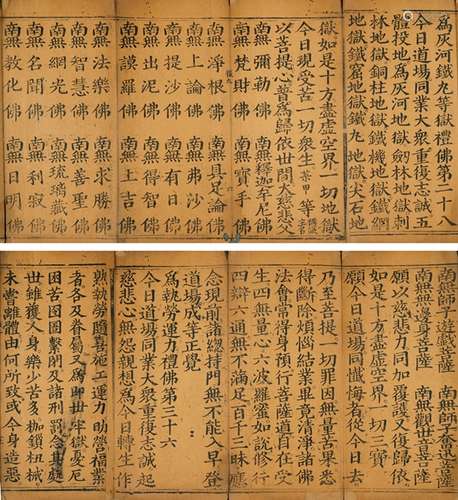 為灰河鐵丸等獄禮佛第二十八
今日道場同業大眾重復志誠五
體投地為灰河地獄劍林地獄刺
林地獄銅柱地獄鐵機地獄鐵網
地獄鐵窟地獄鐵丸地獄尖石地
獄如是十方盡虛空界一切地獄
今日現受苦一切眾生某甲等
以菩提心普為歸依世間大慈悲父
南無彌勒佛 南無釋迦牟尼佛
南無梵財佛 南無寶手佛
南無淨根佛 南無具足論佛
南無上論佛 南無弗沙佛
南無提沙佛 南無有日佛
南無出泥佛 南無得智佛
南無謨羅佛 南無上吉佛
南無法樂佛 南無求勝佛
南無智慧佛 南無善聖佛
南無網光佛 南無琉璃藏佛
南無名聞佛 南無利寂佛
南無教化佛 南無日明佛
南無師子遊戲菩薩 南無師子奮迅菩薩
南無無邊身菩薩 南無觀世音菩薩
願以慈悲力同加覆護又復歸依
如是十方盡虛空界一切三寶
願今日道場同懺悔者從今日去
乃至菩提一切罪因無量苦果悉
得斷除煩惱結業畢竟清淨諸佛
法會常得身預行菩薩道自在受
生四無量心六波羅蜜如說修行
四辯六通無不滿足百千三昧應
念現前諸總持門無不能入早登
道場成等正覺
為執勞運力禮佛第三十六
今日道場同業大眾重復志誠起
慈悲心無怨親想為今日轉生作
熟執勞隨喜施工運力助營福業
者各及眷屬又為即世牢獄憂厄
困苦囹圄繫閉及諸刑罰念其處
世雖獲人身樂少苦多枷鎖杻械
未嘗離體由何所致或今身造惡